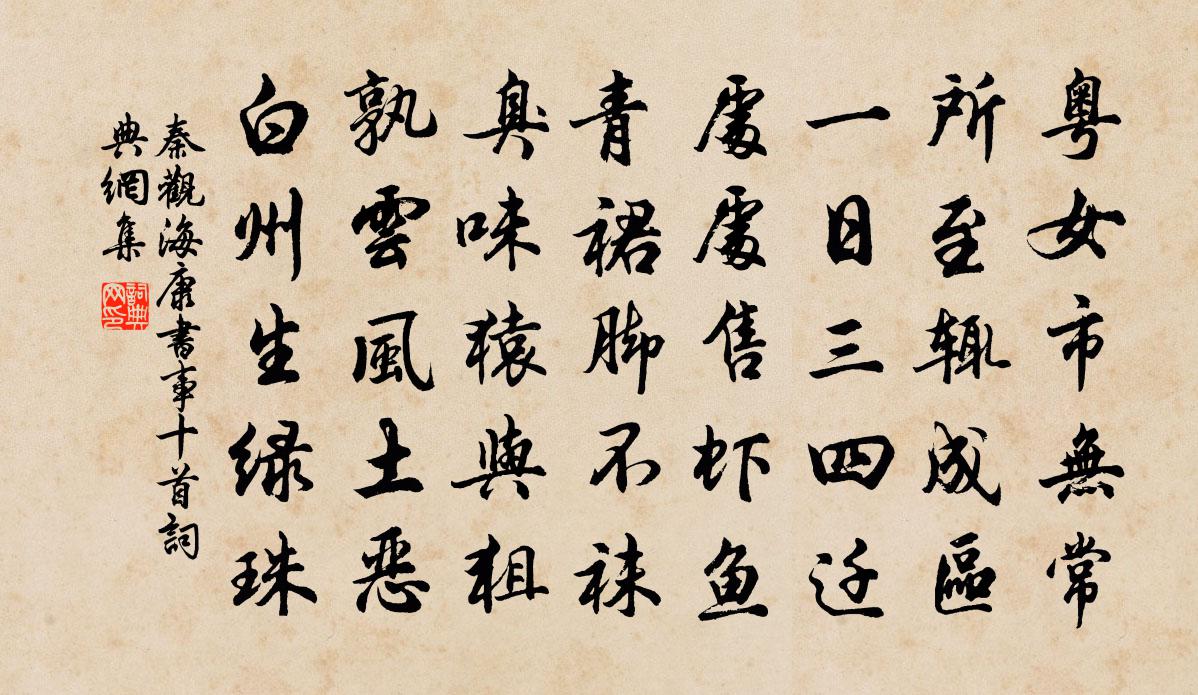 粵女市無常
所至輒成區
一日三四迁
處處售虾鱼
青裙脚不袜
臭味猿與狙
孰雲風土惡
白州生绿珠
秦觀海康書事十首詞
典網集
詞典
网印